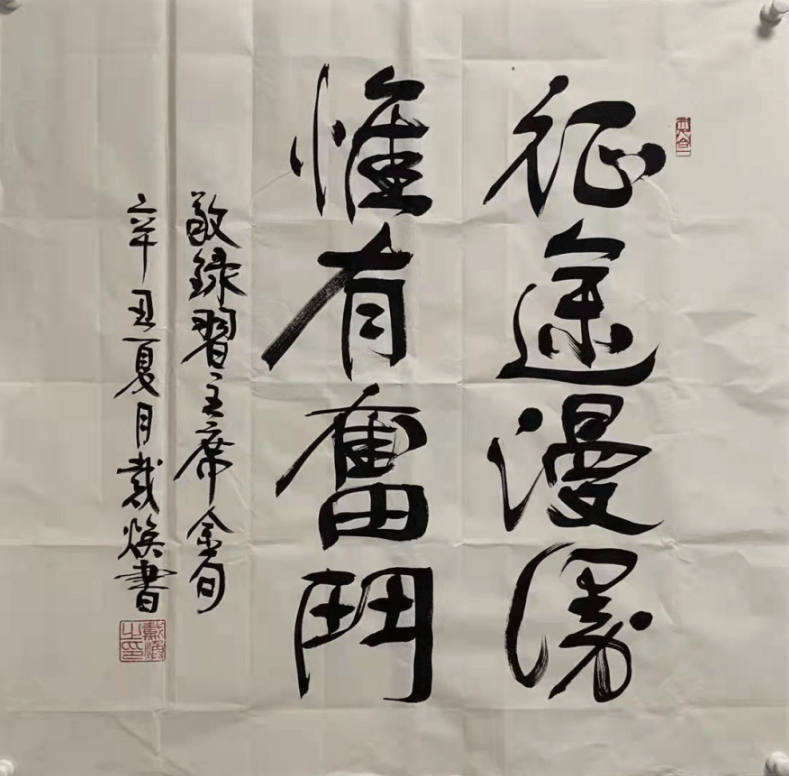 征途漫漫
惟有奮鬥
敬録習主席金句
辛丑夏月戴焕書